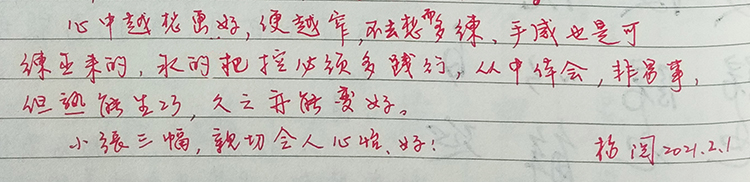 心中越想更好，便越窄，不去想而多练，手感也是可
练出来的，水的把控必须多践行，从中体会，非易事，
但熟能生巧，久之方能变好。
小张三幅，亲切令人心怡、好！ 2021.2.1